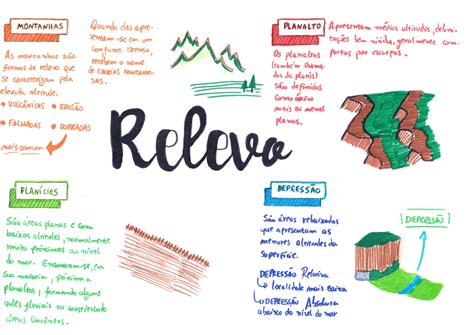 MONTANHAS
As montanhas são
formas de relevo que
se caracterizam pela
elevada altitude.
• VULCÂNICAS • EROSÃO
• FALHADAS • DOBRADAS
mais comum
Quando elas apre-
sentam-se em um
conjunto
recebem o nome
de CADEIAS MONTANHO-
SAS.
PLANALTO
Apresentam médias altitudes, delimi-
tações bem nítidas, geralmente com-
postas por escarpas.
Os planaltos
(também chama-
dos de platôs)
são definidos
como áreas
mais ou menos
planas.
Relevo
PLANÍCIES
São áreas planas e com
baixas altitudes, normalmente
muito próximas ao nível
do mar. Encontram-se, em
sua maioria, próximas a
planaltos, formando alguns
vales fluviais ou constituindo
áreas litorâneas.
DEPRESSÃO
São áreas rebaixadas
que apresentam as
menores altitudes da
superfície.
DEPRESSÃO Relativa
↳ localidade mais baixa
↳ DEPRESSÃO Absoluta
abaixo do nível do mar
DEPRESSÃO